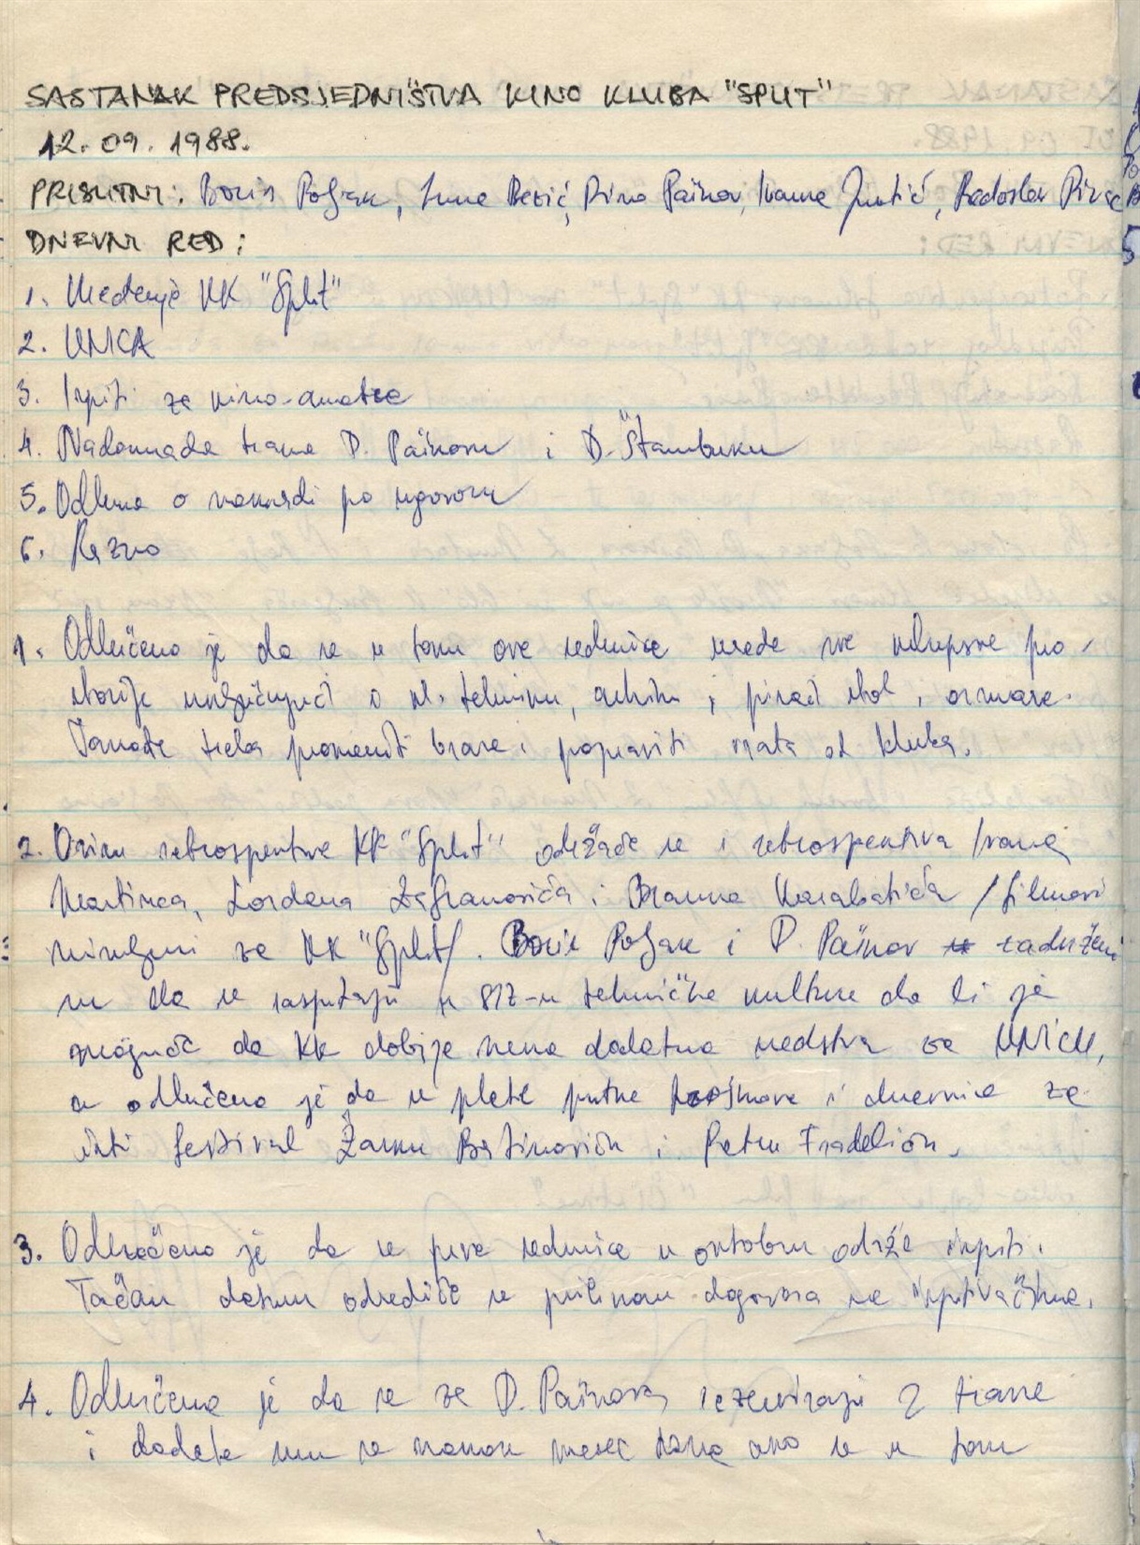 SASTANAK PREDSJEDNIŠTVA KINO KLUBA "SPLIT"
12.09.1988.
PRISUTNI: Boris Poljak, Dino Pažinov, Ivana Radoslav
DNEVNI RED:
1. Uređenje KK "Split"
2. UNICA
3. Ispiti za kino-amatere
4. Nadoknada trake D. Pažinovu i D. Štambuku
5. Odluka o naknadi po ugovoru
6. Razno
1. Odlučeno je da se u toku ove sedmice urede sve klupske pro-
storije uključujući i tehniku, arhivu, pisaći stol, ormare.
Takođe treba promeniti brave i popraviti vrata od kluba.
2. Osim retrospektive KK "Split" održaće se i retrospektiva Ivana
Martinca, Lordana Zafranovića i Branka Karabatića /filmovi
snimljeni za KK "Split"/. Boris Poljak i D. Pažinov zaduženi
su da se raspitaju u SIZ-u tehničke kulture da li je
moguće da KK dobije neka dodatna sredstva za UNICU,
a odlučeno je da se plate putne troškove i dnevnice za
isti festival Žarku Batinoviću i Petru Fradeliću.
3. Odlučeno je da se prve sedmice u oktobru održe ispiti.
Tačan datum odrediće se prilikom dogovora sa ispitivačima.
4. Odlučeno je da se za D. Pažinova rezerviraju 2 trake
i dodele mu se nakon mesec dana ako se u tom